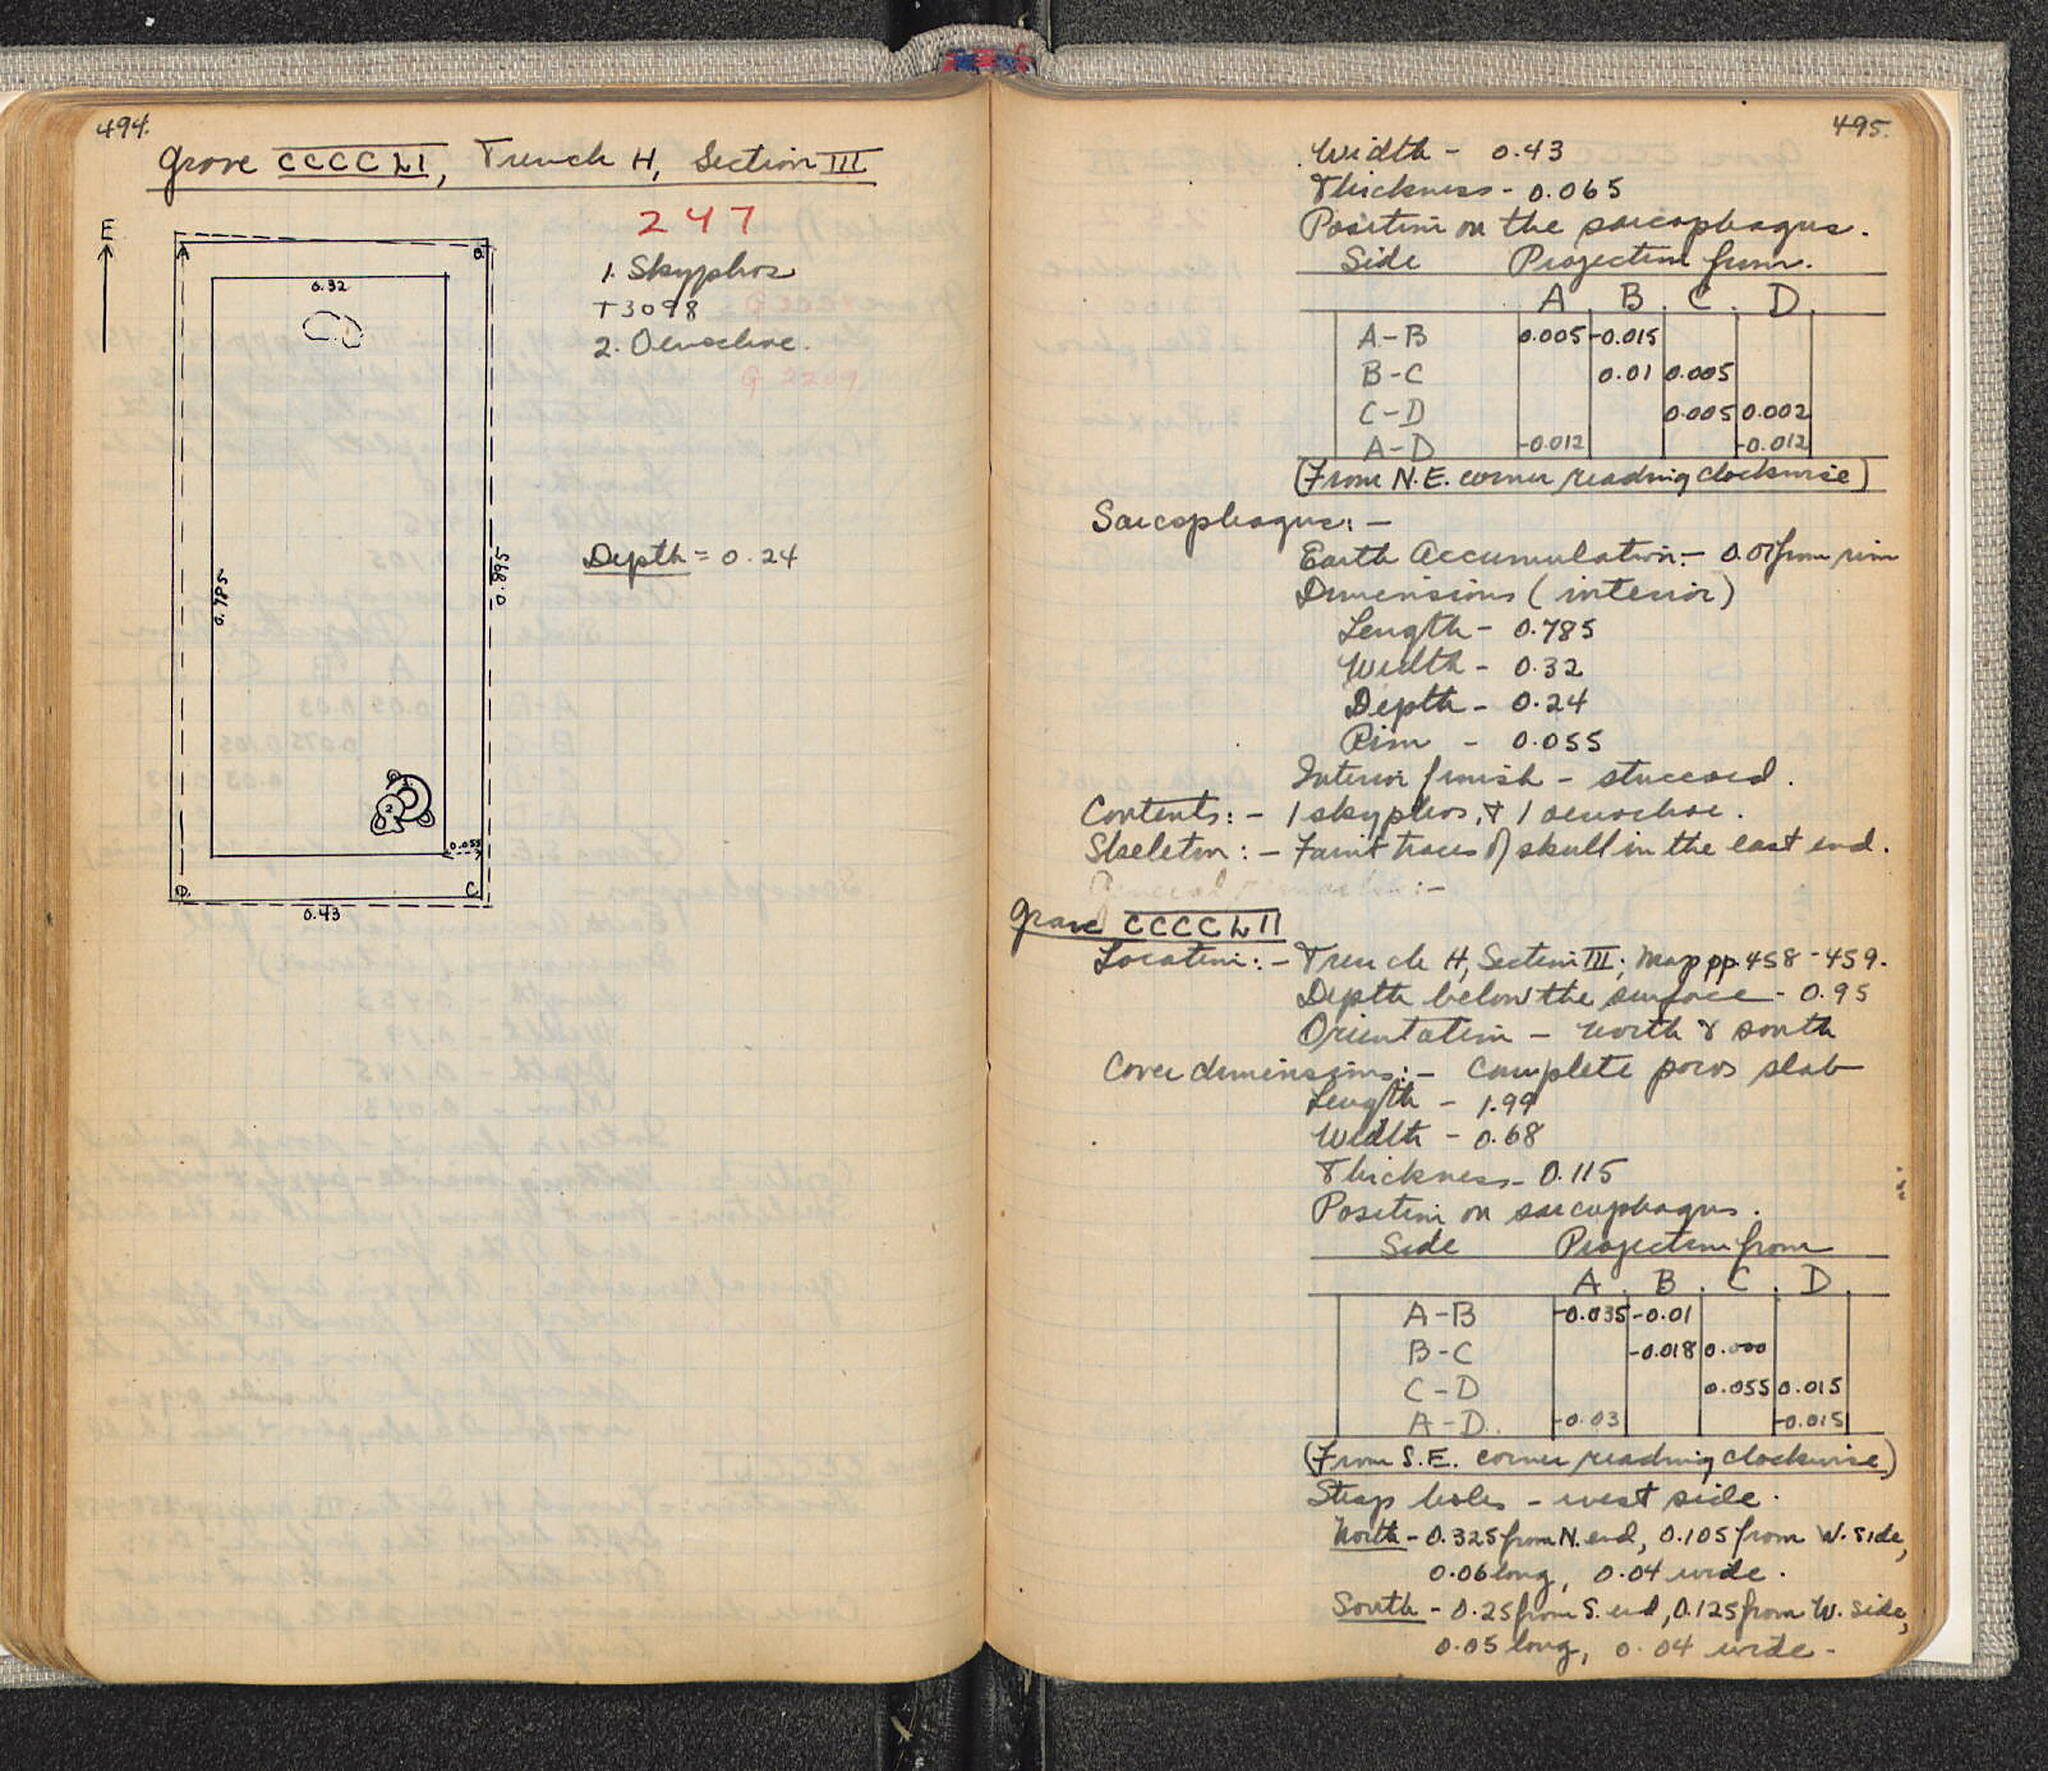 494.
Grave CCCCLI, Trench H, Section III
247
E
A
B
0.32
1. Skyphos
T3098
2. Oenochoe.
G 2209
0.785
0.895
Depth = 0.24
2
0.055
D
C
0.43
495.
Width - 0.43
Thickness - 0.065
Position on the sarcophagus.
Side Projection from.
A. B. C. D.
A-B 0.005 -0.015
B-C 0.01 0.005
C-D 0.005 0.002
A-D -0.012 -0.012
(From N.E. corner reading clockwise)
Sarcophagus: -
Earth Accumulation: - from rim
Dimensions (interior)
Length - 0.785
Width - 0.32
Depth - 0.24
Rim - 0.055
Interior finish - stuccoed.
Contents: - 1 skyphos, & 1 oenochoe.
Skeleton: - Faint traces of skull in the east end.
General remarks: -
Grave CCCCLII
Location: - Trench H, Section III; Map pp. 458-459.
Depth below the surface - 0.95
Orientation - north & south
Cover dimensions: - Complete poros slab
Length - 1.99
Width - 0.68
Thickness - 0.115
Position on sarcophagus.
Side Projection from
A. B. C. D.
A-B -0.035 -0.01
B-C -0.018 0.000
C-D 0.055 0.015
A-D. -0.03 -0.015
(From S.E. corner reading clockwise)
Strap holes - west side.
North - 0.325 from N. end, 0.105 from W. side,
0.06 long, 0.04 wide.
South - 0.25 from S. end, 0.125 from W. side,
0.05 long, 0.04 wide -